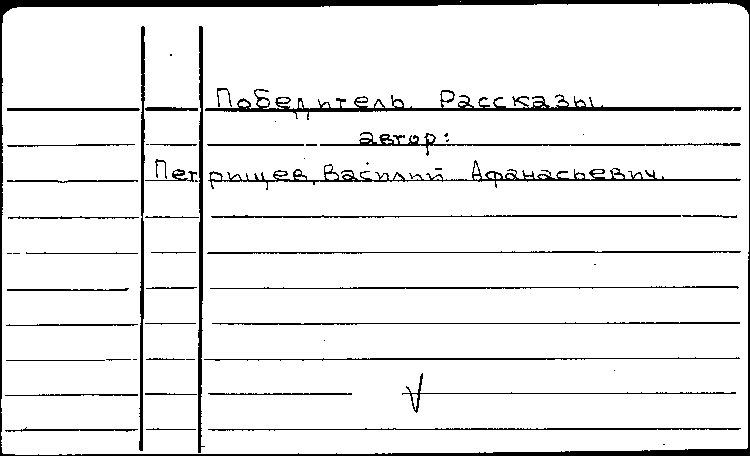 Победитель. Рассказы.
автор:
Петрищев, Василий Афанасьевич.